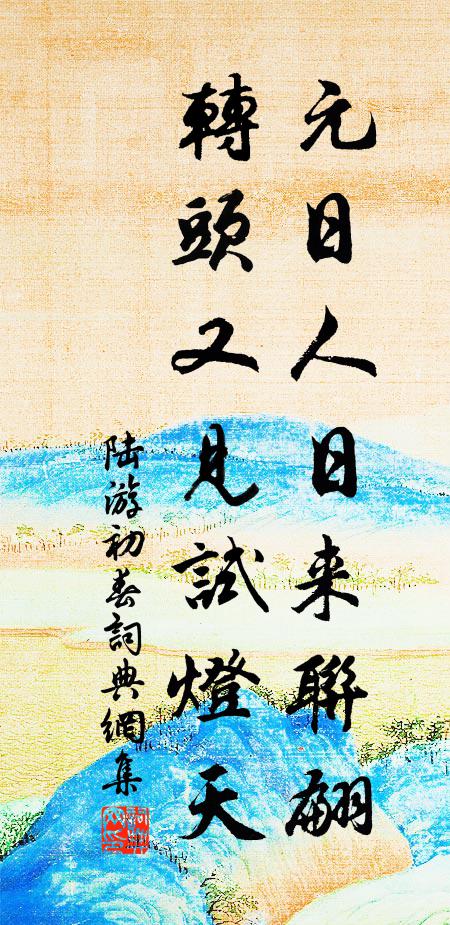 元日人日来聯翩
轉頭又見試燈天
陸游初春詞典網集